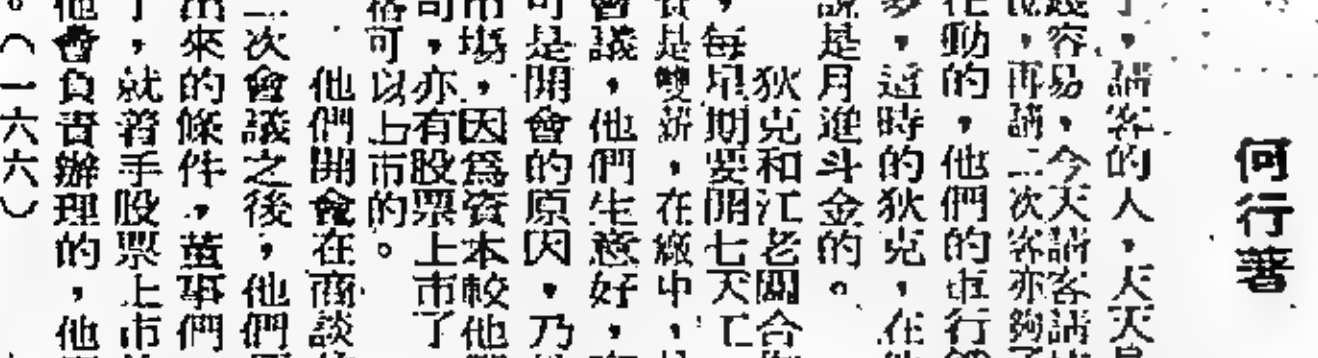 何行著
,請客的人,天天
錢容易,今天請客請
,再請二次客亦夠
動的,他們的車行
多,這時的狄克,在
說是月進斗金的。
狄克和江老闆合
,每星期要開七天工
是雙薪,在廠中,
會議,他們生意好,
可是開會的原因,乃
市場,因爲資本較他
司,亦有股票上市了
落可以上市的。
他們開會在商談
二次會議之後,他們
出來的條件,董事們
了,就着手股票上市
他會負責辦理的,他
。(一六六)